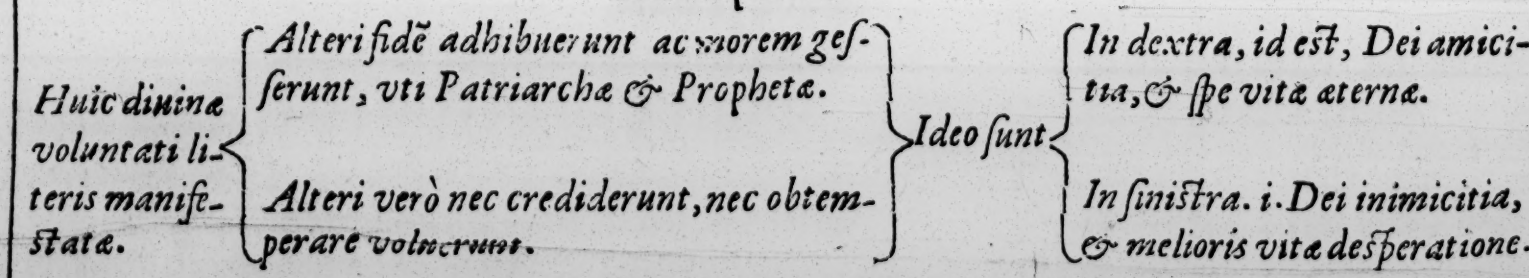 Huic diuinæ
voluntati li-
teris manife-
ſtatæ.
Alteri fidẽ adhibuerunt ac morem geſ-
ſerunt, vti Patriarchæ & Prophetæ.
Alteri verò nec crediderunt, nec obtem-
perare voluerunt.
Ideo ſunt
In dextra, id eſt, Dei amici-
tia, & ſpe vitæ æternæ.
In ſiniſtra. i. Dei inimicitia,
& melioris vitæ deſperatione.